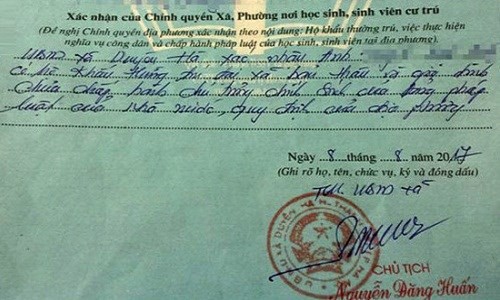 Xác nhận của Chính quyền Xã, Phường nơi học sinh, sinh viên cư trú
(Đề nghị Chính quyền địa phương xác nhận theo nội dung: Hộ khẩu thường trú, việc thực hiện
nghĩa vụ công dân và chấp hành pháp luật của học sinh, sinh viên tại địa phương).
UBND xã Duyên Hà, xác nhận
Có hộ khẩu thường trú tại xã bản thân và gia đình
Chưa chấp hành chủ trương chính sách của Đảng pháp
luật của Nhà nước, quy định của địa phương
Ngày 8 tháng 8 năm 2017
(Ghi rõ họ, tên, chức vụ, ký và đóng dấu)
TM. UBND xã
CHỦ TỊCH
Nguyễn Đăng Huấn